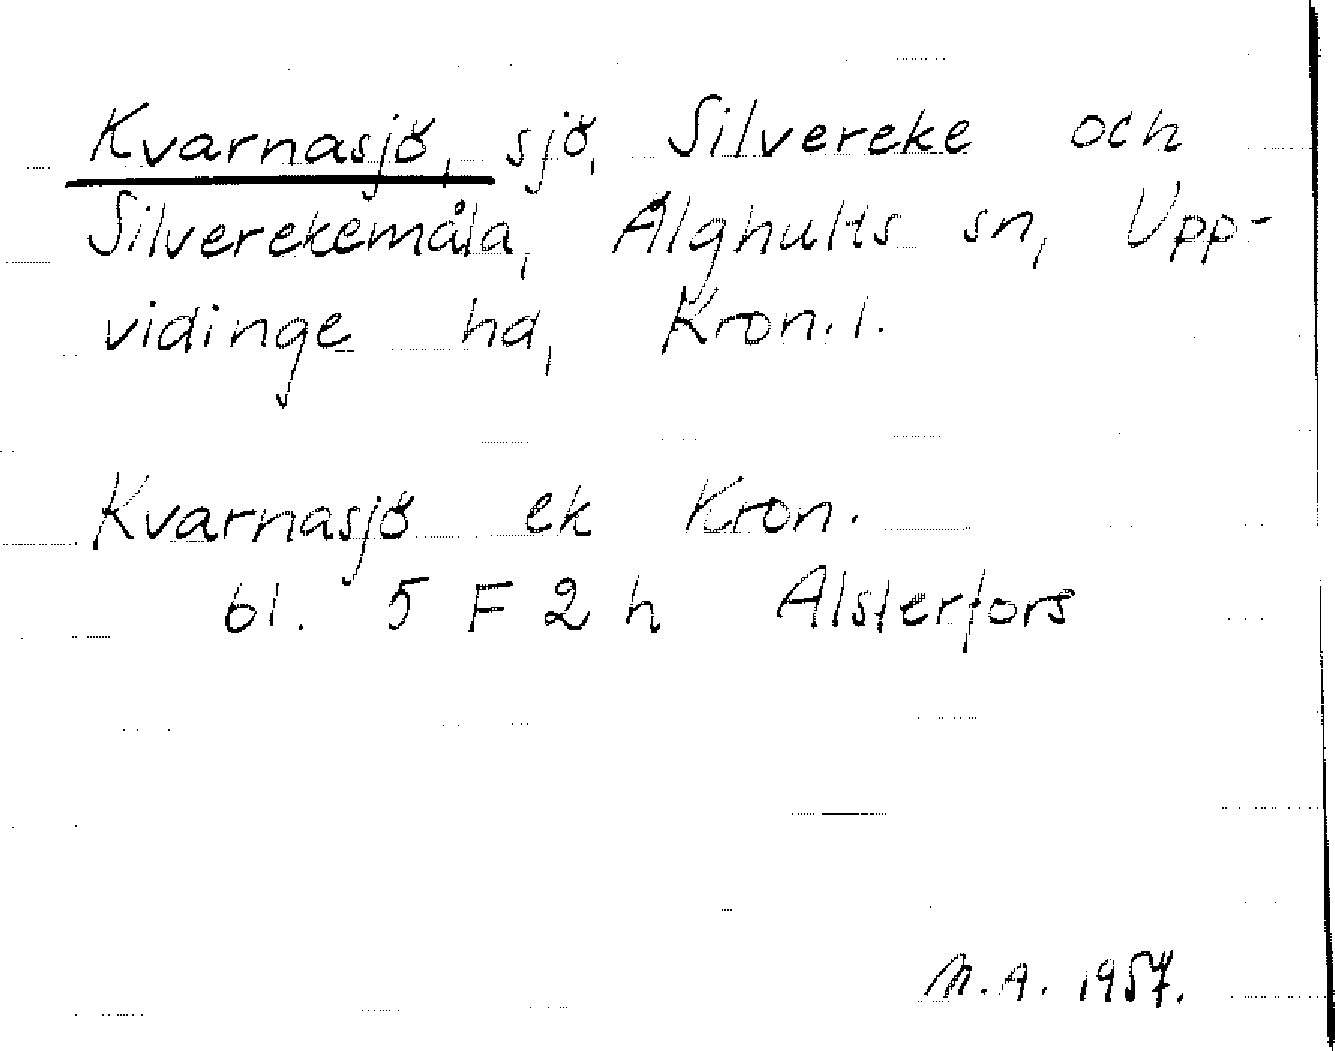 Kvarnasjö, sjö, Silvereke och
Silverekemåla, Älghults sn, Upp-
vidinge hd, Kron.l.
Kvarnasjö ek Kron.
bl. 5 F 2 h Alsterfors
M.A. 1957.